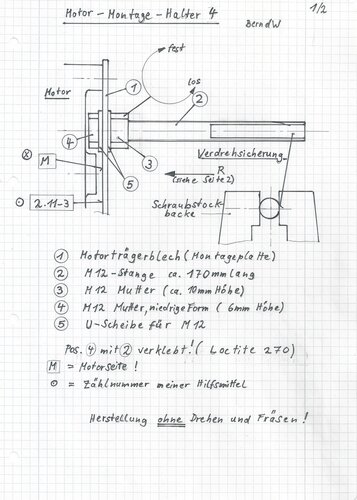 Motor-Montage-Halter 4
BerndW
1/2
fest
los
Motor
1
2
4
3
5
⊗
M
Verdrehsicherung
R
(siehe Seite 2)
⊙
2.11-3
Schraubstock-
backe
1 Motorträgerblech (Montageplatte)
2 M12-Stange ca. 170mm lang
3 M12 Mutter (ca. 10mm Höhe)
4 M12 Mutter, niedrige Form (6mm Höhe)
5 U-Scheibe für M12
Pos. 4 mit 2 verklebt! (Loctite 270)
M = Motorseite!
⊙ = Zählnummer meiner Hilfsmittel
Herstellung ohne Drehen und Fräsen!